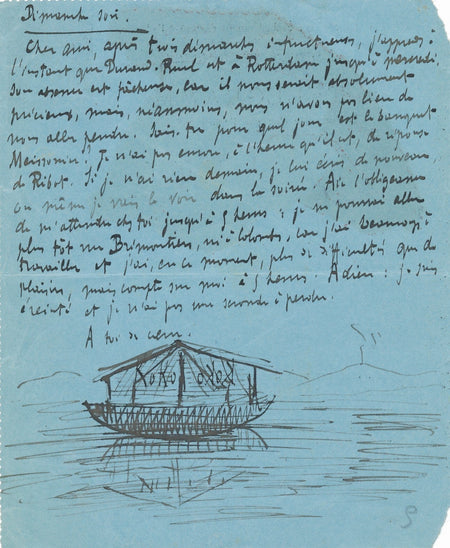 Dimanche soir.
Cher ami, après trois dimanches infructueux, j'apprends à
l'instant que Durand-Ruel est à Rotterdam jusqu'à mercredi.
Son absence est fâcheuse, car il nous serait absolument
précieux, mais, néanmoins, nous n'avons pas lieu de
nous aller pendre. Sais-tu pour quel jour est le banquet
Meissonier? Je n'ai pas encore, à l'heure qu'il est, de réponse
de Ribot. Si je n'ai rien demain, je lui écris de nouveau,
ou même je vais le voir dans la soirée. Aie l'obligeance
de m'attendre chez toi jusqu'à 5 heures: je ne pourrai aller
plus tôt ni à ni à car j'ai beaucoup à
travailler et j'ai, en ce moment, plus de difficultés que de
plaisirs, mais compte sur moi à 5 heures. Adieu: je suis
éreinté et je n'ai pas une seconde à perdre.
A toi de cœur.
KOKO KOKO
5